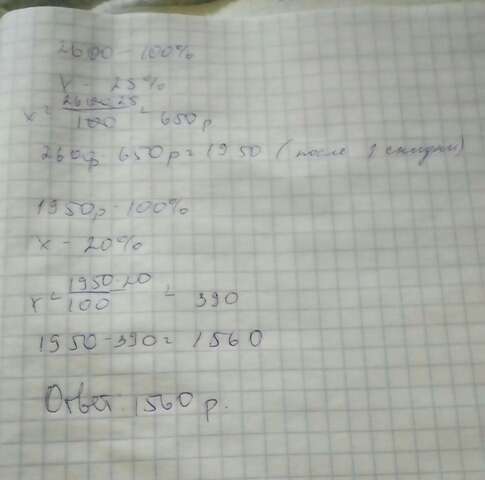 2600 - 100%
x - 25%
x = 2600·25 / 100 = 650р
2600р 650р = 1950 (после 1 скидки)
1950р - 100%
x - 20%
x = 1950·20 / 100 = 390
1950 - 390 = 1560
Ответ: 1560 р.